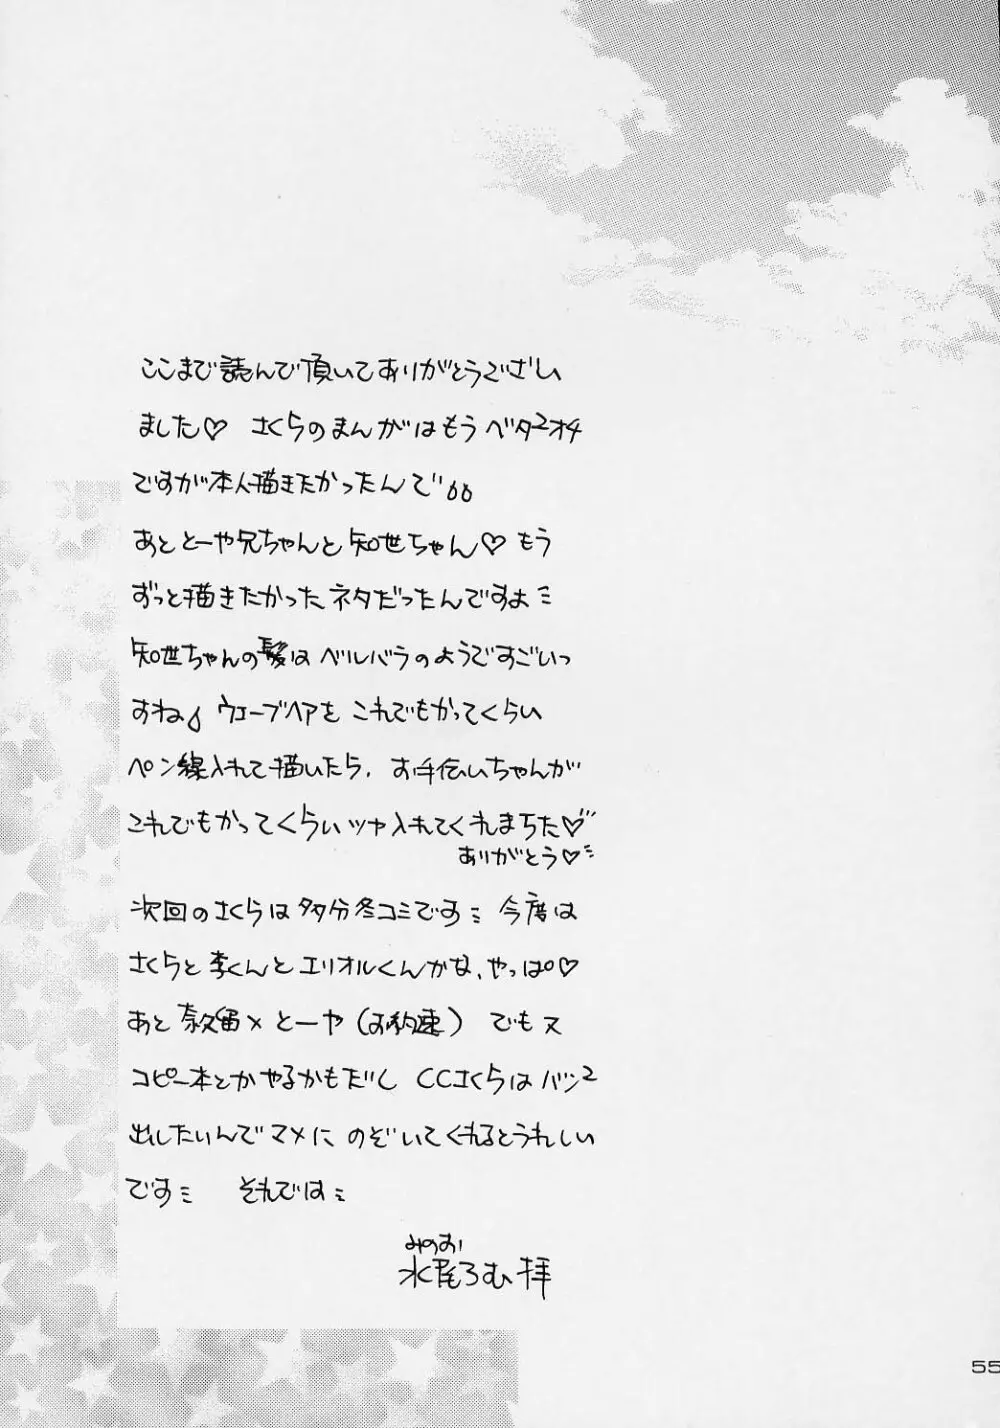 ここまで読んで頂いてありがとうござい
ました♡ さくらのまんがはもう ベタ2オチ
ですが本人描きたかったんで
あと とーや兄ちゃんと 知世ちゃん♡ もう
ずっと描きたかったネタだったんですよ
知世ちゃんの髪は ベルバラのようですごいっ
すね ウェーブヘアを これでもかってくらい
ペン線入れて描いたら、お手伝いちゃんが
これでもかってくらいツヤ入れてくれまちた♡
ありがとう♡
次回のさくらは多分冬コミです 今度は
さくらと李くんとエリオルくんかな、やっぱ♡
あと 奈久留×とーや(お約束) でもヌ
コピー本とかやるかもだし CCさくらはバン2
出したいんでマメに のぞいてくれるとうれしい
です それでは
みのお
水尾ろむ拝
55